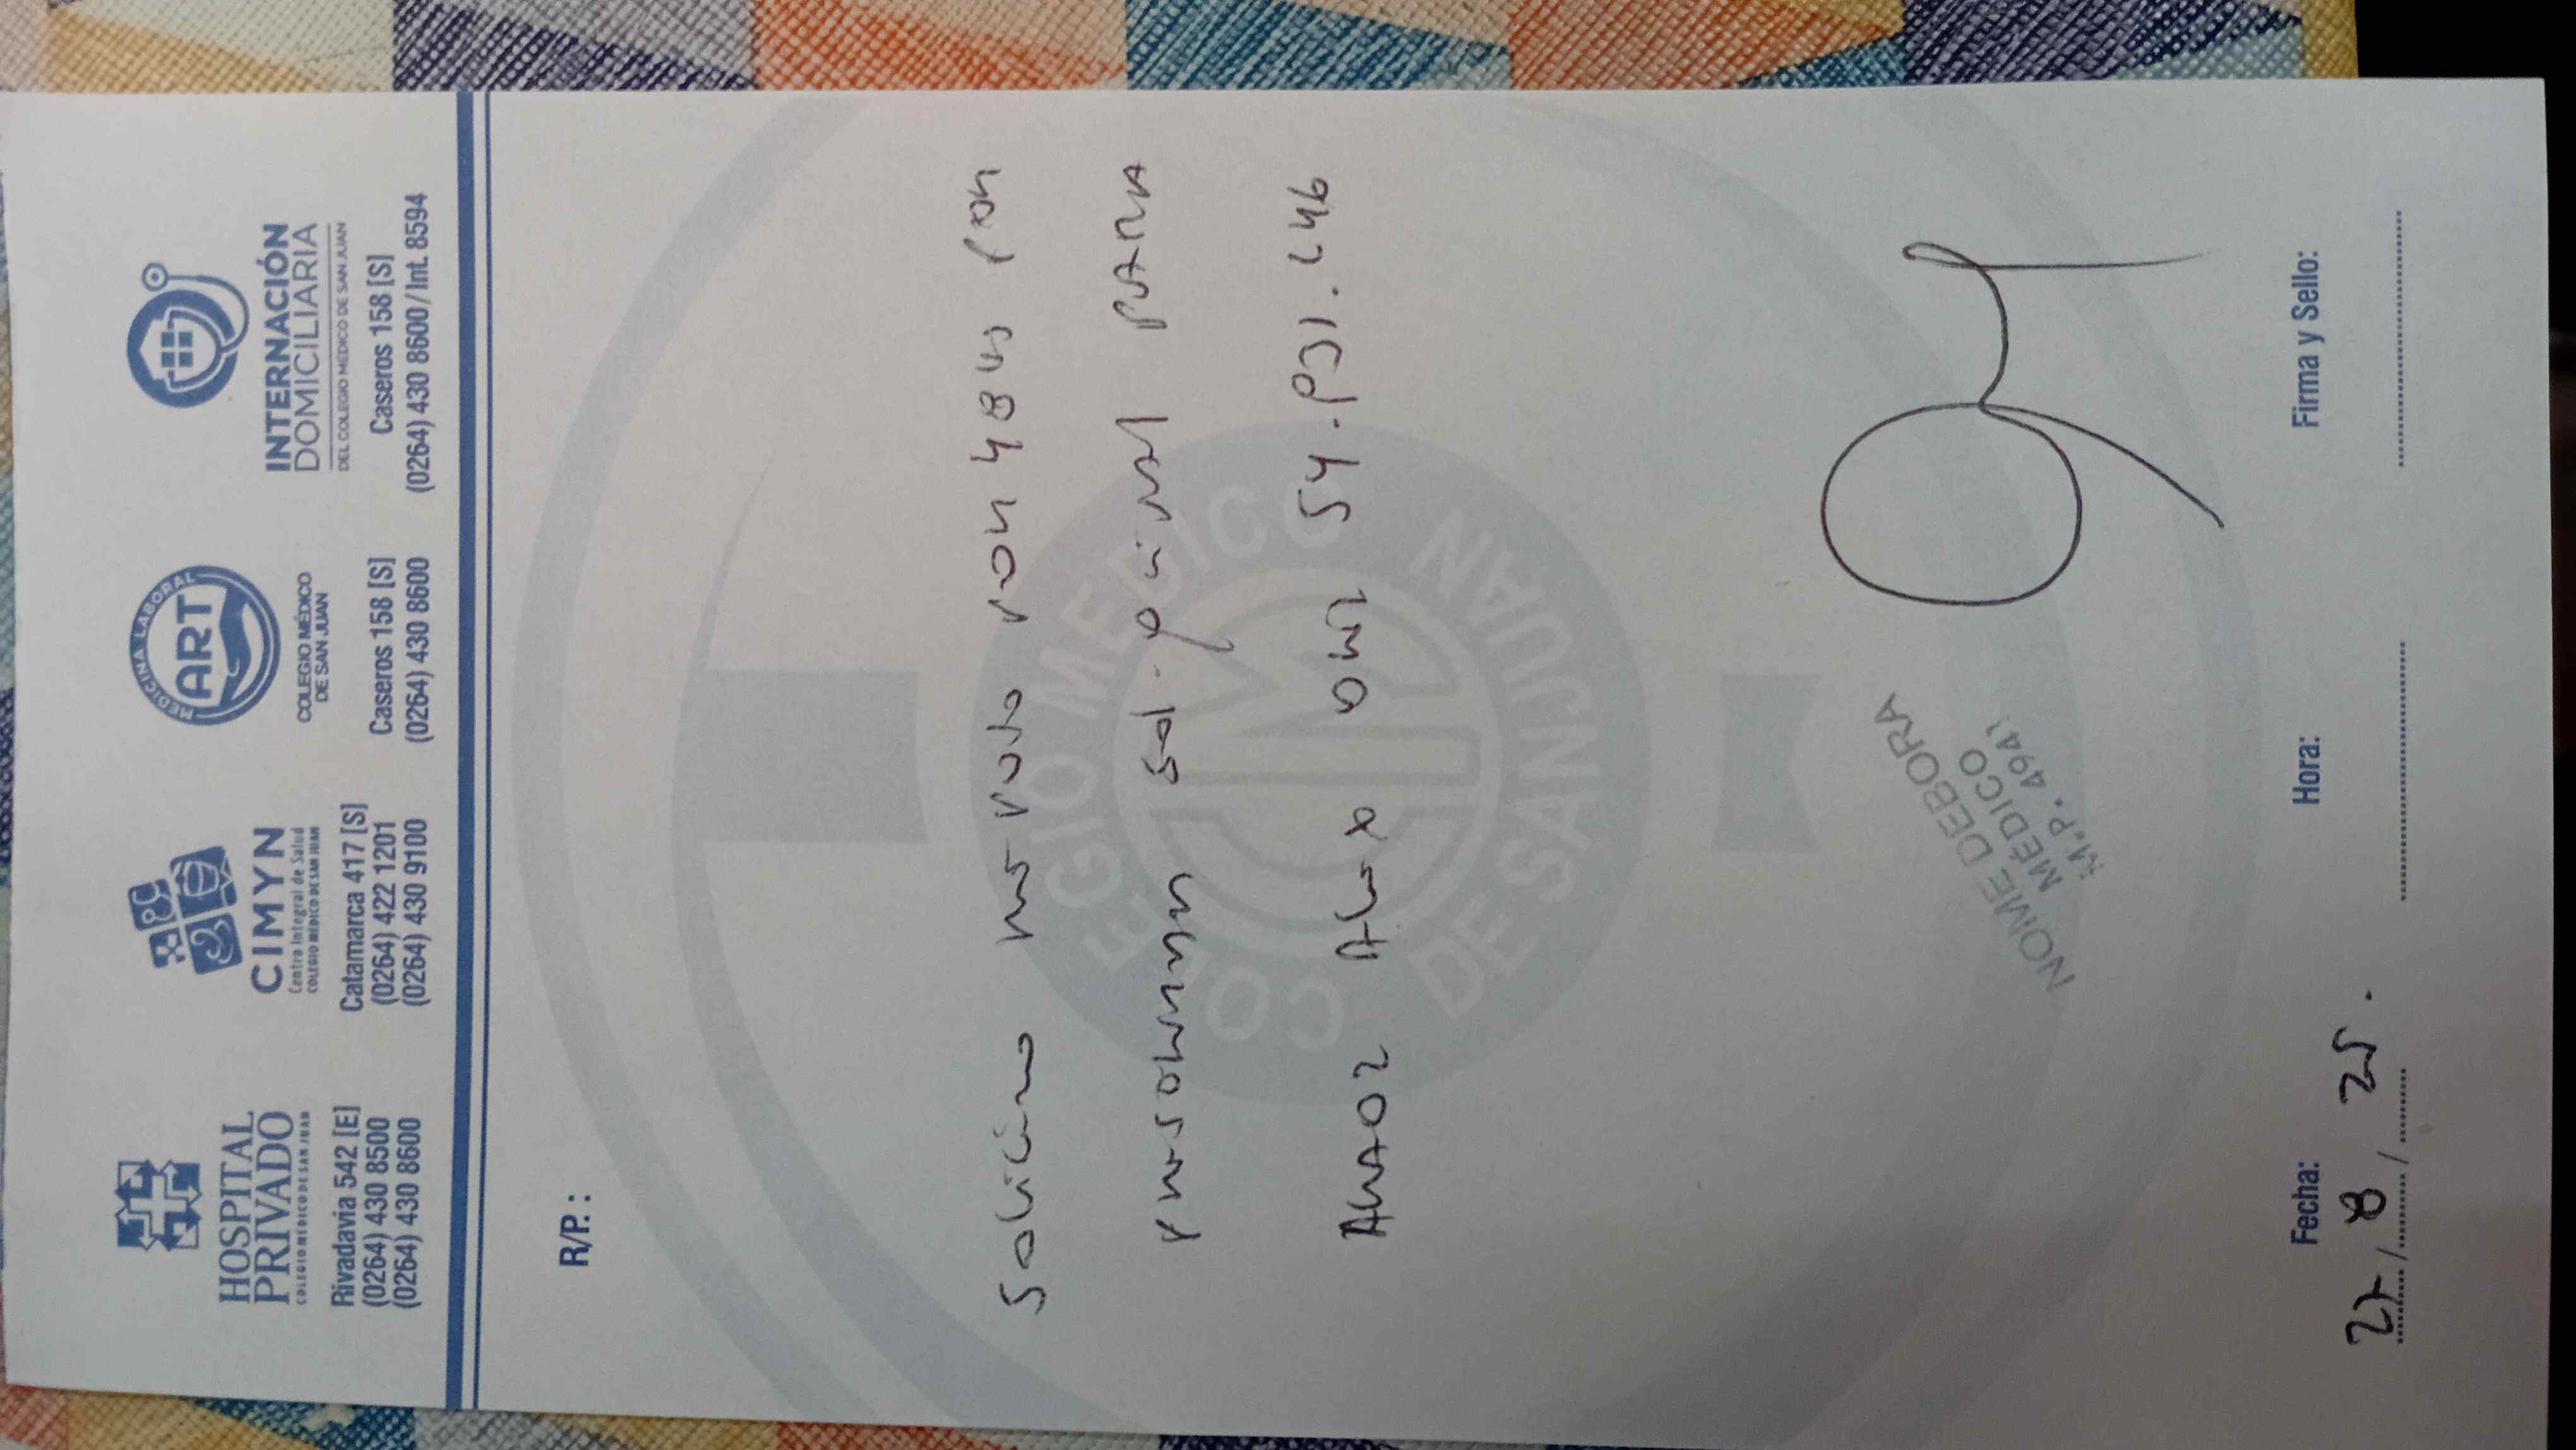 HOSPITAL
PRIVADO
COLEGIO MEDICO DE SAN JUAN
Rivadavia 542 [E]
(0264) 430 8500
(0264) 430 8600
CIMYN
Centro Integral de Salud
COLEGIO MÉDICO DE SAN JUAN
Catamarca 417 [S]
(0264) 422 1201
(0264) 430 9100
MEDICINA LABORAL
ART
COLEGIO MÉDICO
DE SAN JUAN
Caseros 158 [S]
(0264) 430 8600
INTERNACIÓN
DOMICILIARIA
DEL COLEGIO MÉDICO DE SAN JUAN
Caseros 158 [S]
(0264) 430 8600/ Int. 8594
R/P.:
COLEGIO MEDICO
DE SAN JUAN
Solicito reposo por 48 hs por
para
54.
NOME DEBORA
MÉDICO
M.P. 4941
Fecha: Hora: Firma y Sello:
27/8/25.